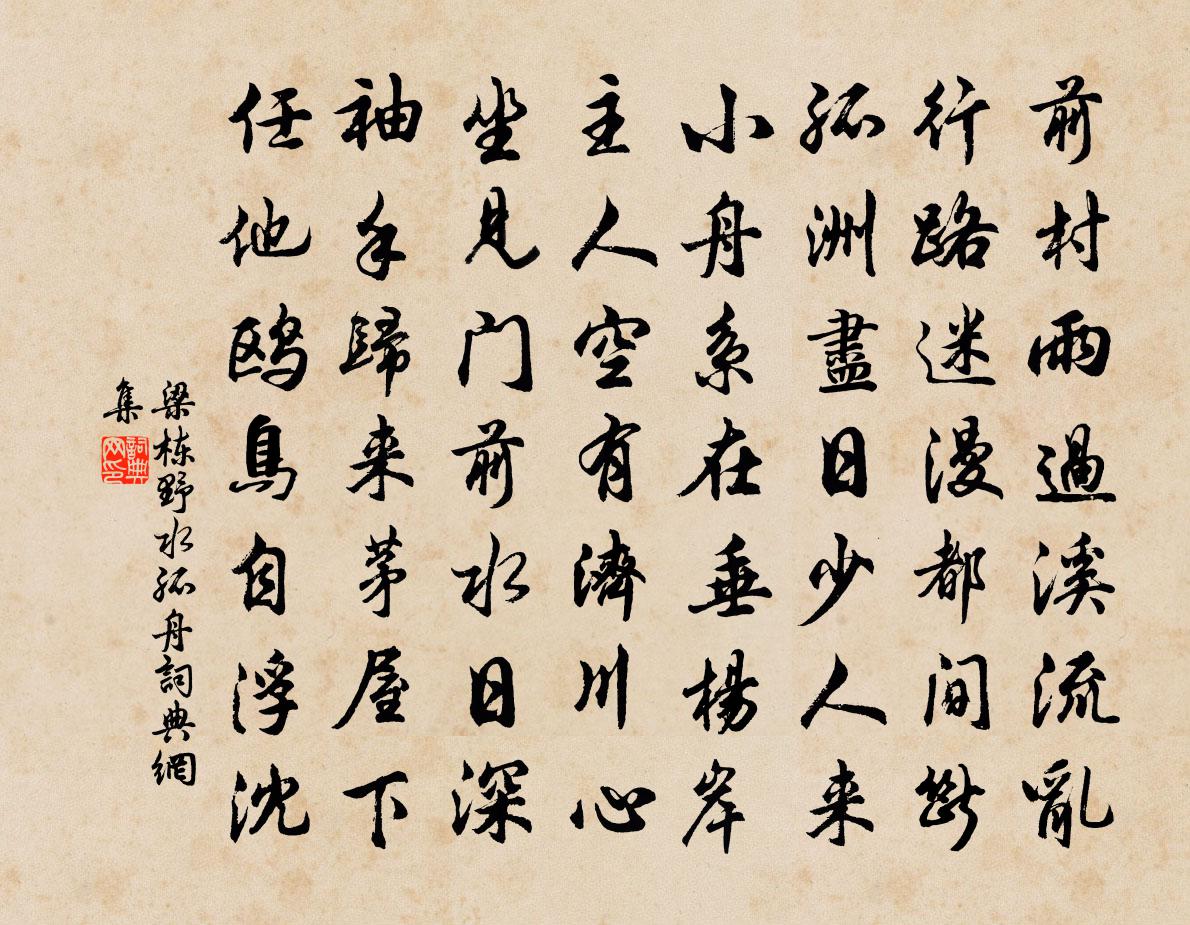 前村雨過溪流亂
行路迷漫都间斷
孤洲盡日少人来
小舟系在垂楊岸
主人空有濟川心
坐見门前水日深
袖手歸来茅屋下
任他鸥鳥自浮沈
梁栋野水孤舟詞典網
集
詞典
网印